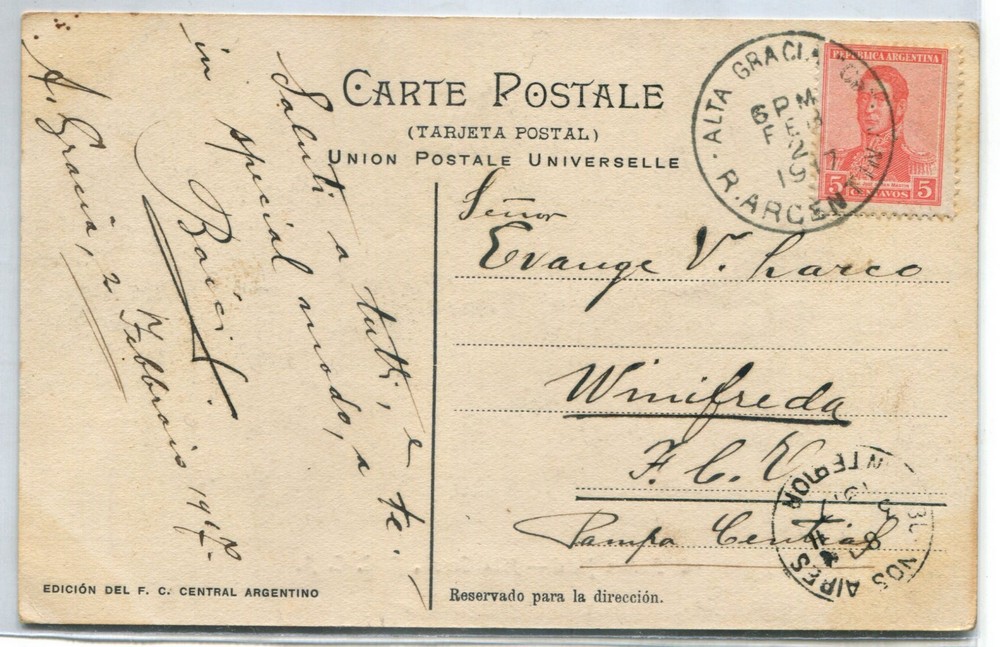 CARTE POSTALE
(TARJETA POSTAL)
UNION POSTALE UNIVERSELLE
Saluti a tutti, e
in special modo, a te.
Bacci
A. Gracia, 2 Febbraio 1917
Señor
Evange V. Larco
Winifreda
F. C. O.
Pampa Central
ALTA GRACIA
6 PM
FEB
2
1917
R. ARGENTINA
REPÚBLICA ARGENTINA
5 CENTAVOS 5
BUENOS AIRES
INTERIOR
EDICIÓN DEL F. C. CENTRAL ARGENTINO
Reservado para la dirección.